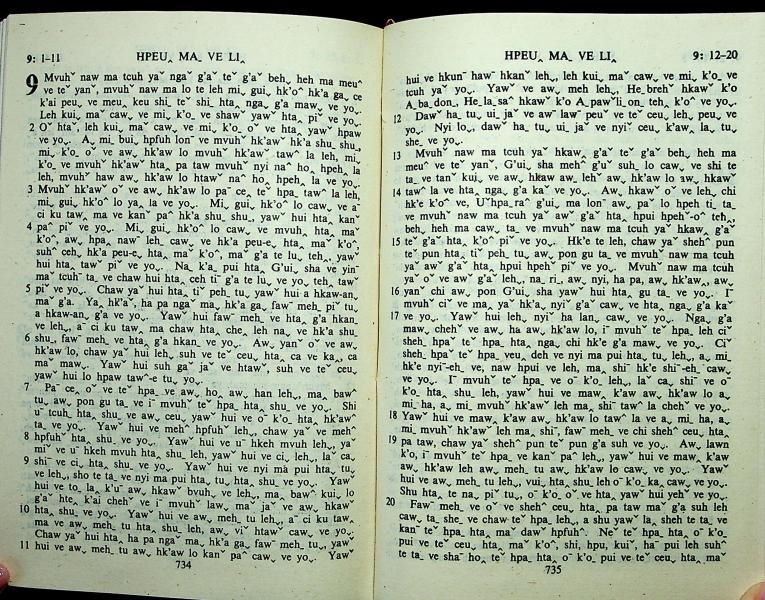 9: 1–11 HPEUꞈ MA_ VE LIꞈ
9 Mvuhˇ naw ma tcuh yaˇ ngaˇ g'aˇ teˇ g'aˇ behˬ heh ma meu^
ve teˇ yanˇ, mvuhˇ naw ma lo te leh miˬ guiˬ hk'o^ hk'aˬ gaˬ ce
k'ai peuˬ ve meuˬ keu shiˬ teˇ shiˬ htaˬ ngaˬ g'a mawˬ ve yoˬ.
Leh kuiˬ ma^ cawˬ ve miˬ k'oꞈ ve shawˇ yawˇ htaˬ piˇ ve yoˬ.
2 Oˇ htaˇ, leh kuiˬ ma^ cawˬ ve miˬ k'oꞈ oˇ ve htaˬ yawˇ hpaw
ve yoˬ. Aꞈ miˬ buiˬ hpfuh lonˉ ve mvuhˇ hk'aˇ hk'a shuˬ shuˬ,
miˬ k'oꞈ oˇ ve awˬ hk'aw lo mvuhˇ hk'awˇ taw^ la leh, miˬ
k'oꞈ ve mvuhˇ hk'awˇ htaˬ pa taw mvuhˇ nyi na^ hoˬ hpehꞈ la
leh, mvuhˇ haw awˬ hk'aw lo htawˇ na^ hoˬ hpehꞈ la ve yoˬ.
3 Mvuhˇ hk'awˇ oˇ ve awˬ hk'aw lo paˉ ceꞈ teˇ hpaˬ taw^ la leh,
miˬ guiˬ hk'o^ lo yaˬ la ve yoˬ. Miˬ guiˬ hk'o^ lo cawˬ ve aˉ
ci ku taw_ ma ve kanˇ pa^ hk'a shuˬ shuˬ, yawˇ hui htaˬ kanˇ
4 pa^ piˇ ve yoˬ. Miˬ gui_ hk'o^ lo cawˬ ve mvuhˇ htaˬ maˇ
k'o^, awˬ hpaꞈ nawˇ leh_ cawˬ ve hk'a peu-eˬ htaˬ maˇ k'o^,
suh^ cehꞈ hk'a peu-eˬ htaˬ maˇ k'o^, maˇ g'a te luˬ tehˬ, yawˇ
hui htaˬ tawˇ piˇ ve yoˬ. Naꞈ k'aꞈ pui htaˬ G'uiˬ sha ve yinˉ
maˇ tcuhˉ ta_ ve chaw hui htaˬ ceh tiˇ g'a te luˬ ve yoˬ tehˬ tawˇ
5 piˇ ve yoˬ. Chaw yaˇ hui htaˬ tiˇ pehꞈ tuˬ yawˇ hui a hkaw-anˬ
maˇ g'a. Yaꞈ hk'aˇ, ha pa ngaˇ maˬ hk'a gaˬ faw^ meh_ piˇ tuˬ
a hkaw-anˬ g'a ve yoˬ. Yawˇ hui faw^ meh_ ve htaˬ g'a hkanˬ
ve leh ˬ, aˉ ci ku taw_ ma chaw htaˬ cheꞈ leh naˬ ve hk'a shuˬ
6 shuˬ, faw^ meh_ ve htaˬ g'a hkanˬ ve yoˬ. Awˬ yanˇ oˇ ve awˬ
hk'aw lo, chaw yaˇ hui leh, suh ve teˇ ceuˬ htaˬ ca ve kaˬ, ca
maˇ mawˬ. Yawˇ hui suh gaˇ jaˇ ve htawˇ, suh ve teˇ ceuˬ
yawˇ hui lo hpaw taw^-e tuˬ yoˬ.
7 Paˉ ceꞈ oˇ ve teˇ hpa_ ve awˬ hoˬ awˬ han lehˬ, maˬ baw^
tuˬ awˬ pon gu ta_ ve iˉ mvuhˇ teˇ hpa_ htaˬ shu_ ve yoˬ. Shi
uˉ tcuhꞈ htaˬ shu_ ve awˬ ceuˬ yawˇ hui ve oˉ k'oꞈ htaˬ hk'aw^
ta_ ve yoˬ. Yawˇ hui ve mehˇ hpfuh^ lehˬ, chaw yaˇ ve mehˇ
8 hpfuh^ htaˬ shu_ ve yoˬ. Yawˇ hui ve uˉ hkeh mvuh lehˬ, yaˇ
miˇ ve uˉ hkeh mvuh htaˬ shu_ leh, yawˇ hui ve ciˬ lehˬ, laˇ ca_
9 shiˉ ve ciˬ htaˬ shu_ ve yoˬ. Yawˇ hui ve nyi ma pui htaˬ tuˬ
ve lehˬ, sho te ta_ ve nyi ma pui htaˬ tuˬ htaˬ shu_ ve yoˬ. Yawˇ
hui ve to_ laꞈ k'u^ awˬ hkaw^ bvuhꞈ ve lehˬ, maˬ baw^ kuiˬ lo
g'a^ hteꞈ k'ai chehˇ ve iˉ mvuhˇ lawˬ maˇ jaˇ ve awˬ hkaw^
10 htaˬ shu_ ve yoˬ. Yawˇ hui ve awˬ meh_ tu lehˬ, aˉ ci ku taw_
ma ve awˬ meh_ tu htaˬ shu_ leh, awˬ viˇ htawˇ cawˬ ve yoˬ.
Chaw yaˇ hui htaˬ ha pa ngaˇ maˬ hk'a gaˬ faw^ meh_ tuˬ, yawˇ
11 hui ve awˬ meh_ tu awˬ hk'aw lo kanˇ pa^ cawˬ ve yoˬ. Yawˇ
734
HPEUꞈ MA_ VE LIꞈ 9: 12–20
hui ve hkunˉ hawˉ hkanˇ lehˬ, leh kuiˬ maˇ cawˬ ve miˬ k'oꞈ ve
tcuh yaˇ yoˬ. Yawˇ ve awˬ meh lehˬ, He_brehˇ hkaw^ k'o
Aꞈba_donꞈ, Heꞈla_saˇ hkaw^ k'o Aꞈpaw^li_onꞈ tehꞈ k'o^ ve yoˬ.
12 Dawˇ haꞈ tuˬ uiˬ jaˇ ve awˉ lawˇ peuˇ ve teˇ ceuˬ lehˬ peuˬ ve
yoˬ. Nyi loˬ, dawˇ haꞈ tuˬ uiˬ jaˇ ve nyiˇ ceuˬ k'awˬ laꞈ tuˬ
she_ ve yoˬ.
13 Mvuhˇ naw ma tcuh yaˇ hkawˬ g'aˇ teˇ g'aˇ behˬ heh ma
meu^ ve teˇ yanˇ, G'uiˬ sha meh^ g'uˇ suhˬ lo cawˬ ve shi te
ta_ ve tanˇ kuiˬ ve awˬ hkaw awˬ leh^ awˬ hk'aw lo awˬ hkaw^
14 taw^ la ve htaˬ ngaˬ g'a kaˇ ve yoˬ. Awˬ hkaw^ oˇ ve lehˬ, chi
hk'e k'o^ ve, Uˇhpaꞈraꞈ g'uiˬ ma lonˇ awˬ paˇ lo hpeh tiꞈ ta_
ve mvuhˇ naw ma tcuh yaˇ awˇ g'aˇ htaˬ hpui hpehˇ-oˇ tehˬ,
behˬ heh ma caw ta_ ve mvuhˇ naw ma tcuh yaˇ hkawˬ g'aˇ
15 teˇ g'aˇ htaˬ k'o^ piˇ ve yoˬ. Hk'e te leh, chaw yaˇ sheh^ pun
teˇ pun htaˬ tiˇ pehꞈ tuˬ awˬ pon gu ta_ ve mvuhˇ naw ma tcuh
yaˇ awˇ g'aˇ htaˬ hpui hpehˇ piˇ ve yoˬ. Mvuhˇ naw ma tcuh
yaˇ oˇ ve awˇ g'aˇ lehˬ, na_ riꞈ, awˬ nyi, ha pa, awˬ hk'awˬ, awˬ
16 yanˇ chi awˬ pon G'uiˬ sha yawˇ hui htaˬ gu ta_ ve yoˬ. Iˉ
mvuhˇ ciˇ ve maˬ yaˇ hk'aˬ nyiˇ g'aˇ cawˬ ve htaˬ ngaˬ g'a kaˇ
17 ve yoˬ. Yawˇ hui lehˬ, nyiˇ ha lanꞈ cawˬ ve yoˬ. Ngaˬ g'a
mawˬ chehˇ ve awˬ ha awˬ hk'aw lo, iˉ mvuhˇ teˇ hpaꞈ leh ciˇ
sheh_ hpaˇ teˇ hpa_ htaˬ ngaˬ chi hk'e g'a mawˬ ve yoˬ. Ciˇ
sheh_ hpaˇ teˇ hpa_ veuˬ deh ve nyi ma pui htaˬ tuˬ lehˬ, aꞈ miˬ
hk'e nyiˉ-ehꞈ ve, naw hpui ve leh, maꞈ shiˉ hk'e shiˉ-ehꞈ cawˬ
ve yoˬ. Iˉ mvuhˇ teˇ hpa_ ve oˉ k'oꞈ lehˬ, laˇ caꞈ shiˉ ve oˉ
k'oꞈ htaˬ shu_ leh, yawˇ hui ve mawˬ k'aw_ awˬ hk'aw lo aꞈ
miˬ-haꞈ, aꞈ miˬ mvuhˇ hk'awˇ leh ma_ shiˉ taw^ la chehˇ ve yoˬ.
18 Yawˇ hui ve mawˬ k'aw_ awˬ hk'aw lo taw^ la ve aꞈ miˬ haꞈ, aꞈ
miˬ mvuhˇ hk'awˇ leh ma_ shiˉ, faw^ meh_ ve chi sheh^ ceuˬ htaˬ
19 pa taw, chaw yaˇ sheh^ pun teˇ pun g'a suh ve yoˬ. Awˬ lawn
k'o, iˉ mvuhˇ teˇ hpa_ ve kanˇ pa^ lehˬ, yawˇ hui ve mawˬ k'aw_
awˬ hk'aw leh awˬ meh_ tu awˬ hk'aw lo cawˬ ve yoˬ. Yawˇ
hui ve awˬ meh_ tu lehˬ, vuiˬ htaˬ shu_ leh oˉ k'oꞈ kaꞈ cawˬ ve yoˬ.
Shu htaˬ te naꞈ piˇ tuˬ, oˉ k'oꞈ oˇ ve htaˬ yawˇ hui yehˇ ve yoˬ.
20 Faw^ meh_ ve oˇ ve sheh^ ceuˬ htaˬ pa taw maˇ g'a suh leh
cawˬ ta_ she_ ve chaw teˇ hpa_ lehˬ, a shu yawˇ la_ sheh te ta_ ve
kanˉ teˇ hpa_ htaˬ maˇ daw^ hpfuh^. Neˇ teˇ hpa_ htaˬ oˉ k'oꞈ
pui ve teˇ ceuˬ htaˬ maˇ k'o^, shi, hpu, kuiˬ, haˉ pui leh suh^
te ta_ ve sha^ hoˬ teˇ hpa_ htaˬ oˉ k'oꞈ pui ve teˇ ceuˬ htaˬ maˇ
735